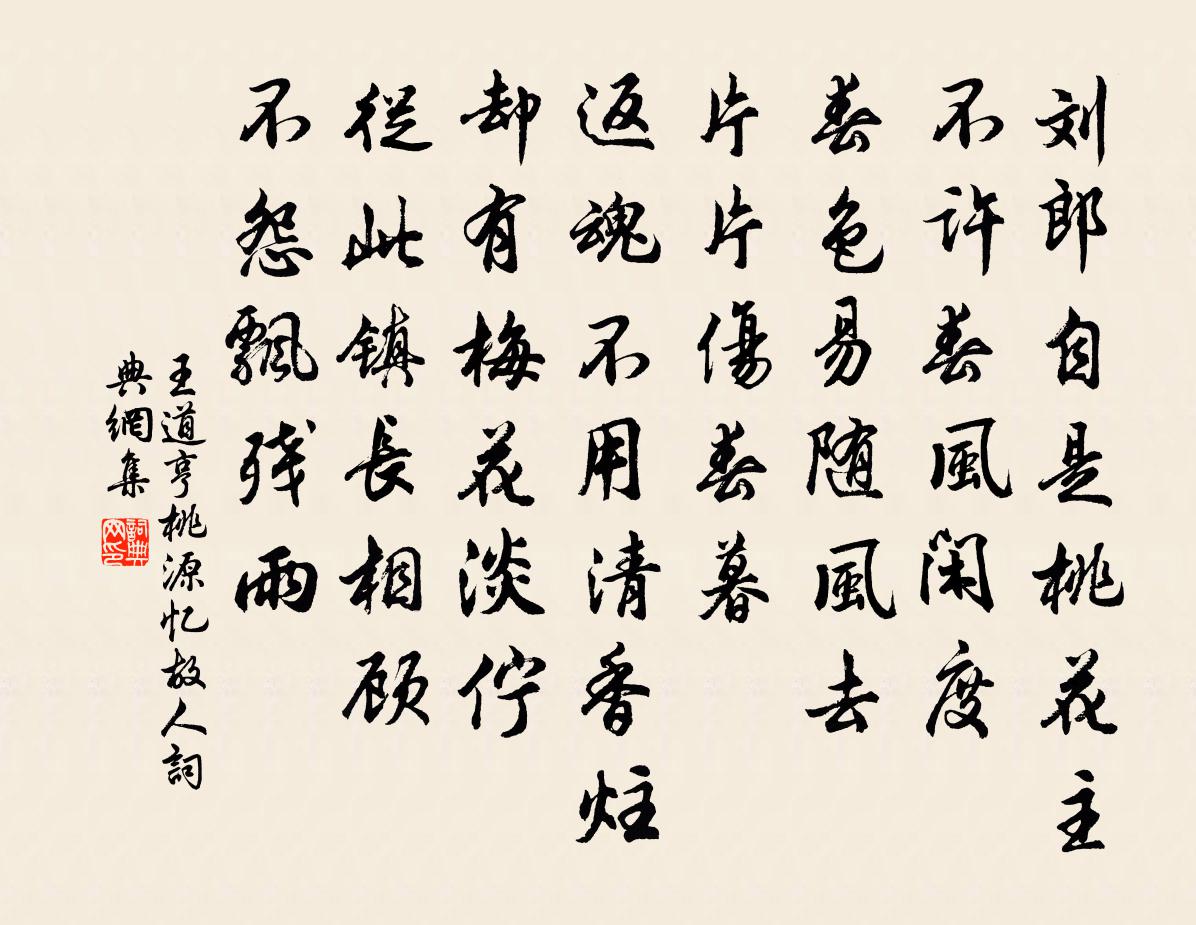 刘郎自是桃花主
不许春風闲度
春色易随風去
片片傷春暮
返魂不用清香炷
却有梅花淡佇
從此鎮長相顾
不怨飄残雨
王道亨桃源忆故人詞
典網集
詞典网印